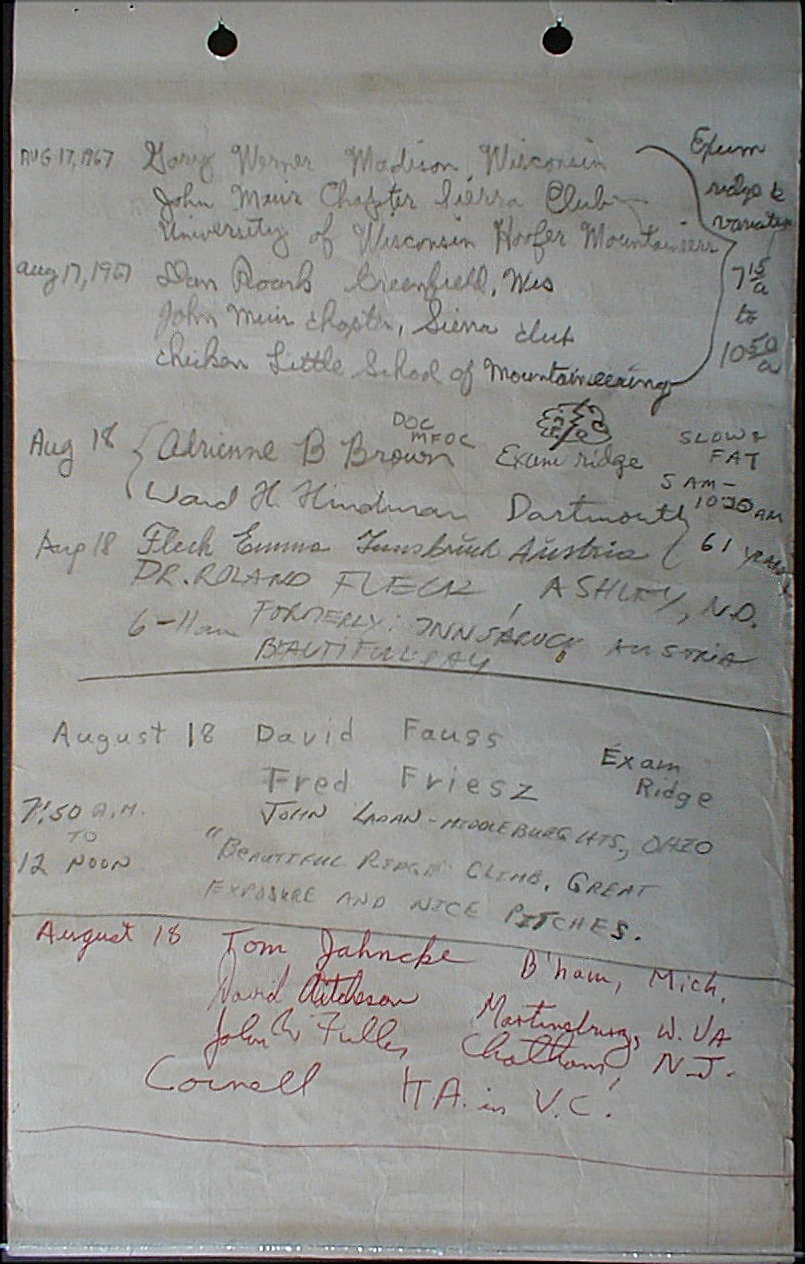 AUG 17, 1967 Gary Werner Madison, Wisconsin
Exum
ridge &
variation
7 15/a
to
10 50/a
John Muir Chapter Sierra Club
University of Wisconsin Hoofer Mountaineers
Aug 17, 1967 Dan Roark Greenfield, Wis
John Muir chapter, Sierra club
Chicken Little School of Mountaineering
Aug 18 Adrienne B Brown DOC MFOC Exum ridge
SLOW &
FAT
5 AM-
10:20 AM
Ward H. Hindman Dartmouth
Aug 18 Fleck Emma Innsbruck Austria 61 YEARS
DR. ROLAND FLECK, ASHLEY, N.D.
6-11am FORMERLY: INNSBRUCK AUSTRIA
BEAUTIFUL DAY
August 18 David Fauss
Exam
Ridge
Fred Friesz
7:50 A.M.
TO
12 NOON
JOHN - MIDDLEBURG HTS., OHIO
"BEAUTIFUL RIDGE CLIMB. GREAT
EXPOSURE AND NICE PITCHES.
August 18 Tom Jahncke B'ham, Mich.
David Aitcheson Martinsburg, W. VA
John W Fuller Chatham, N.J.
Cornell in V.C.